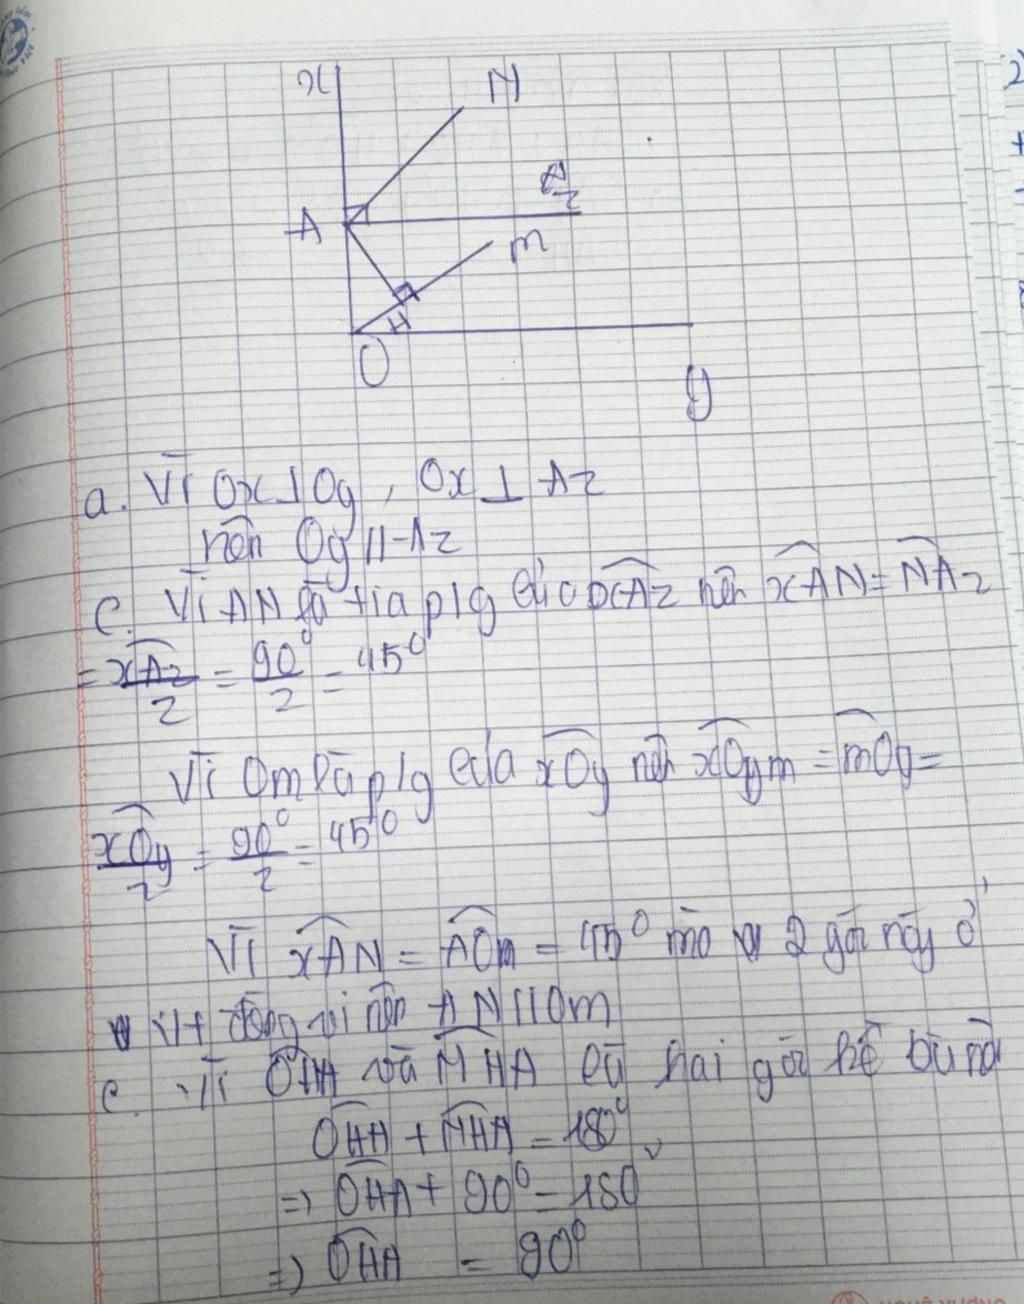 x
N
z
A
m
H
O
y
a. Vì Ox ⊥ Oy, Ox ⊥ Az
nên Oy // Az
c. Vì AN là tia p/g của xAz nên xAN = NAz
= xAz/2 = 90°/2 = 45°
Vì Om là p/g của xOy nên xOym = mOy =
xOy/2 = 90°/2 = 45°
Vì xAN = AOm = 45° mà 2 góc này ở
vt đồng vị nên AN // Om
c. Vì OHA và MHA là hai góc kề bù nên
OHA + MHA = 180°
=> OHA + 90° = 180°
=> OHA = 90°